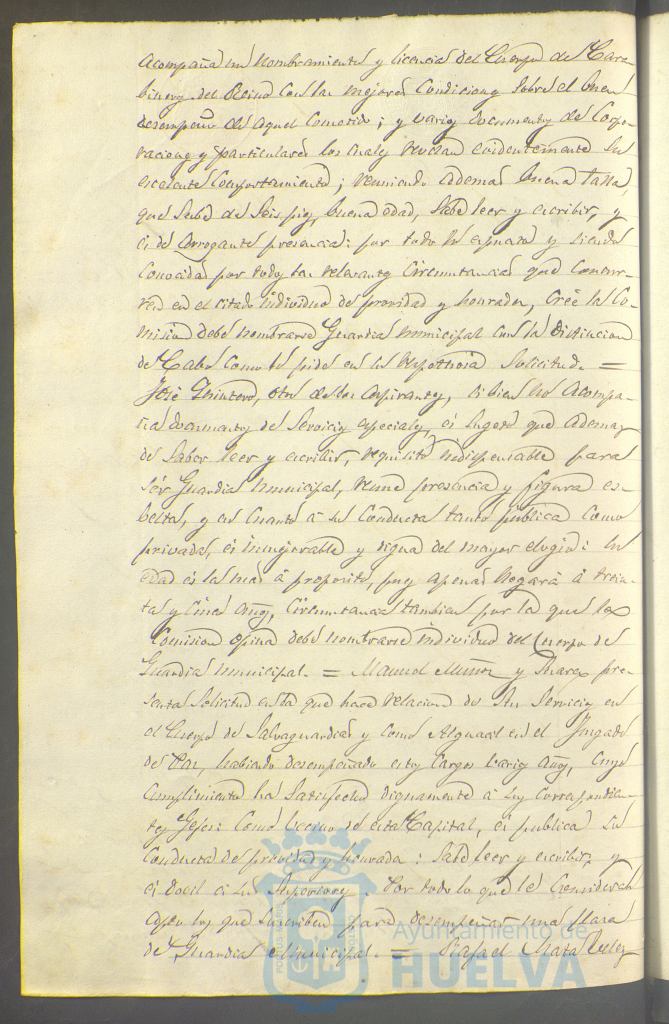 Acompaña su nombramiento y licencia del Cuerpo de Cara-
bineros del Reino con las mejores condiciones sobre el buen
desempeño de aquel cometido; y varios documentos de Corpo-
raciones y particulares los cuales revelan evidentemente su
escelente comportamiento; reuniendo ademas buena talla,
que sube de seis pies, buena edad, sabe leer y escribir, y
es de arrogante presencia: por todo lo espuesto y siendo
conocidas por todos las relevantes circunstancias que concur-
ren en el citado individuo de providad y honradez, Crée la Co-
mision debe nombrarse Guardia municipal con la distincion
de Cabo como lo pide en su respetuosa solicitud. =
José Quintero, otro de los aspirantes, si bien no acompa-
ña documentos de servicios especiales, es sugeto que ademas
de saber leer y escribir, requisito indispensable para
sér Guardia municipal, reune presencia y figura es-
belta, y en cuanto á su conducta tanto pública como
privada, es inmejorable y digna del mayor elogio: su
edad es la mas á proposito, pues apenas llegará á trein-
ta y cinco años, circunstancia tambien por la que la
Comision opina debe nombrarse individuo del Cuerpo de
Guardia municipal. = Manuel Muñoz y pre-
senta solicitud en la que hace relacion de sus servicios en
el Cuerpo de Salvaguardias y como Alguacil en el Juzgado
de Paz, habiendo desempeñado estos cargos varios años, cuyo
cumplimiento ha satisfecho dignamente á sus correspondien-
tes Jefes: Como vecino de esta Capital, es publica su
conducta de providad y honrada: sabe leer y escribir, y
es docil á sus Superiores. Por todo lo que le consideran
los que suscriben para desempeñar una plaza
de Guardia Municipal. = Rafael Mata
Ayuntamiento de
HUELVA